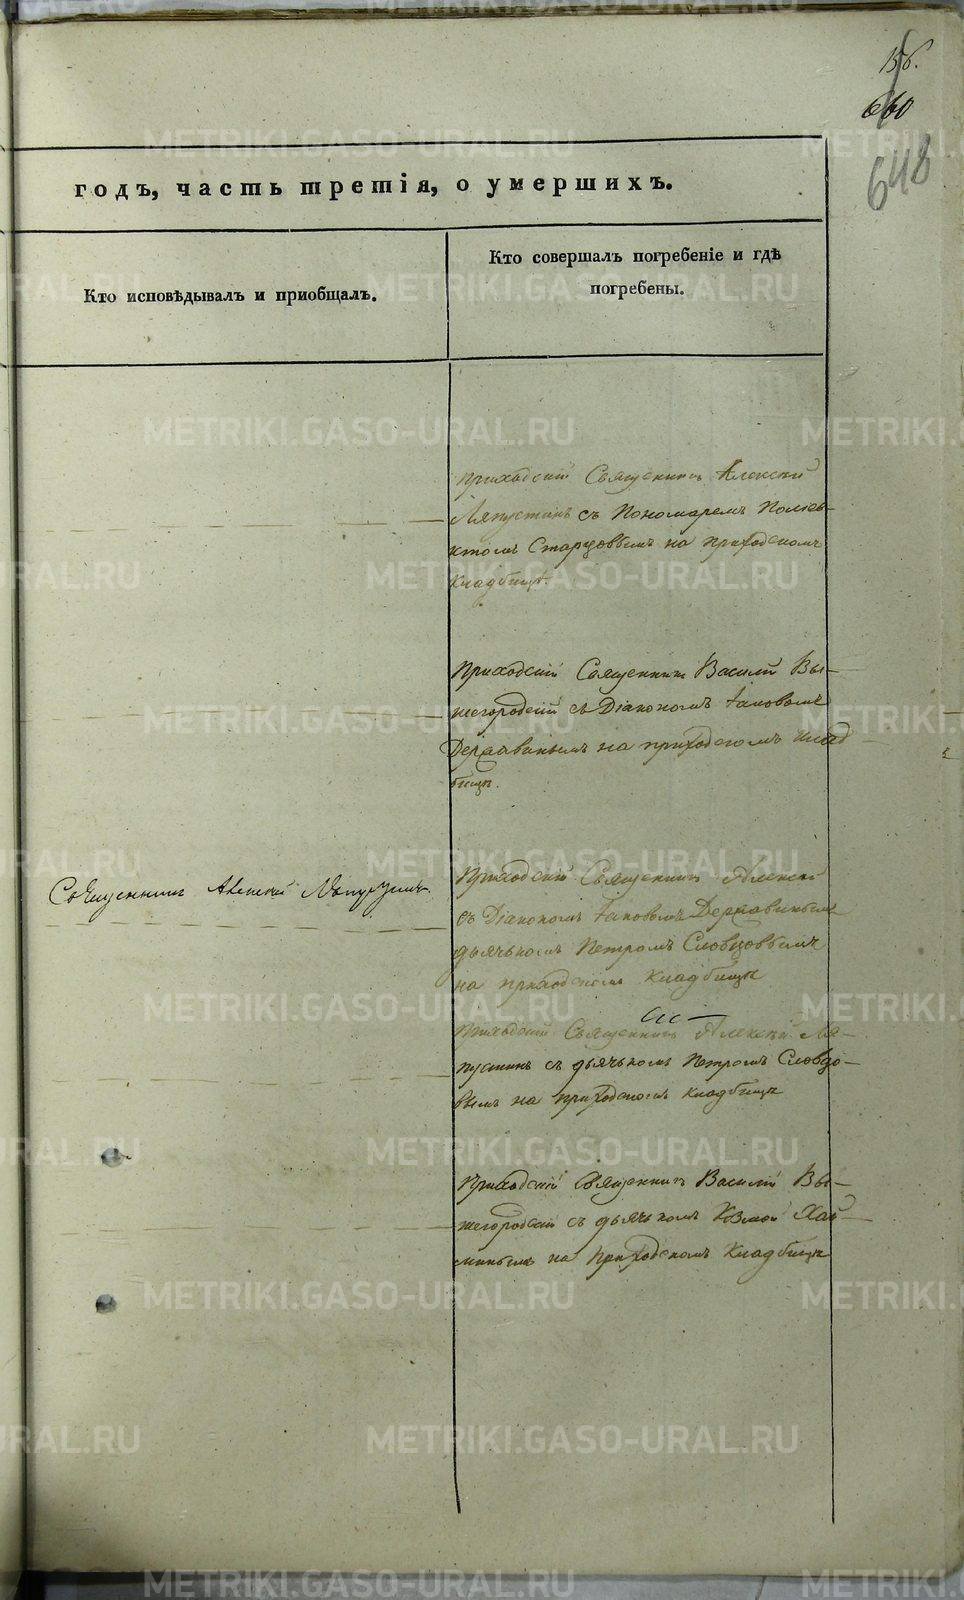 156.
660
648
годъ, часть третія, о умершихъ.
Кто исповѣдывалъ и приобщалъ.
Кто совершалъ погребеніе и гдѣ
погребены.
Приходскій Священникъ Алексѣй
Ляпустинъ съ Пономаремъ Полiев-
ктомъ Старцовымъ на приходскомъ
кладбищѣ.
Приходскій Священникъ Василій Вы-
шегородскій съ Діакономъ Іаковомъ
Державинымъ на приходскомъ клад
бищѣ.
Священникъ Алексѣй Ляпустинъ.
Приходскій Священникъ Алексѣй
съ Діакономъ Іаковомъ Державинымъ
дьячькомъ Петромъ Словцовымъ
на приходскомъ кладбищѣ
Приходскій Священникъ Алексѣй Ля-
пустинъ съ дьячькомъ Петромъ Словцо-
вымъ на приходскомъ кладбищѣ
Приходскій Священникъ Василій Вы-
шегородскій съ дьячькомъ Козмой
на Приходскомъ Кладбищѣ
METRIKI.GASO-URAL.RU